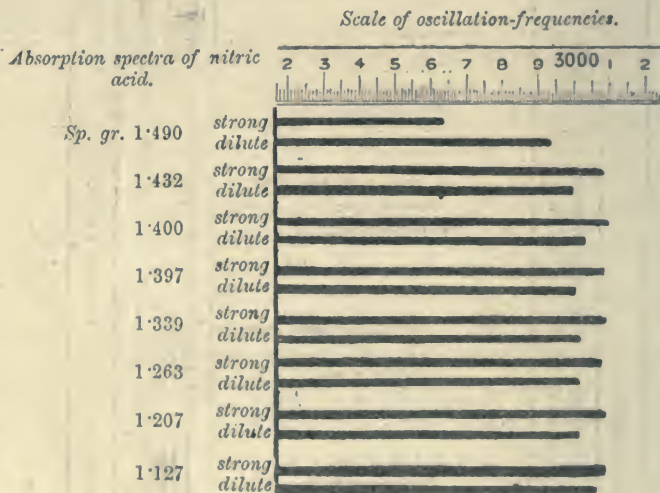 Scale of oscillation-frequencies.
Absorption spectra of nitric
acid.
2 3 4 5 6 7 8 9 3000 1 2
Sp. gr. 1·490 strong
dilute
1·432 strong
dilute
1·400 strong
dilute
1·397 strong
dilute
1·339 strong
dilute
1·263 strong
dilute
1·207 strong
dilute
1·127 strong
dilute